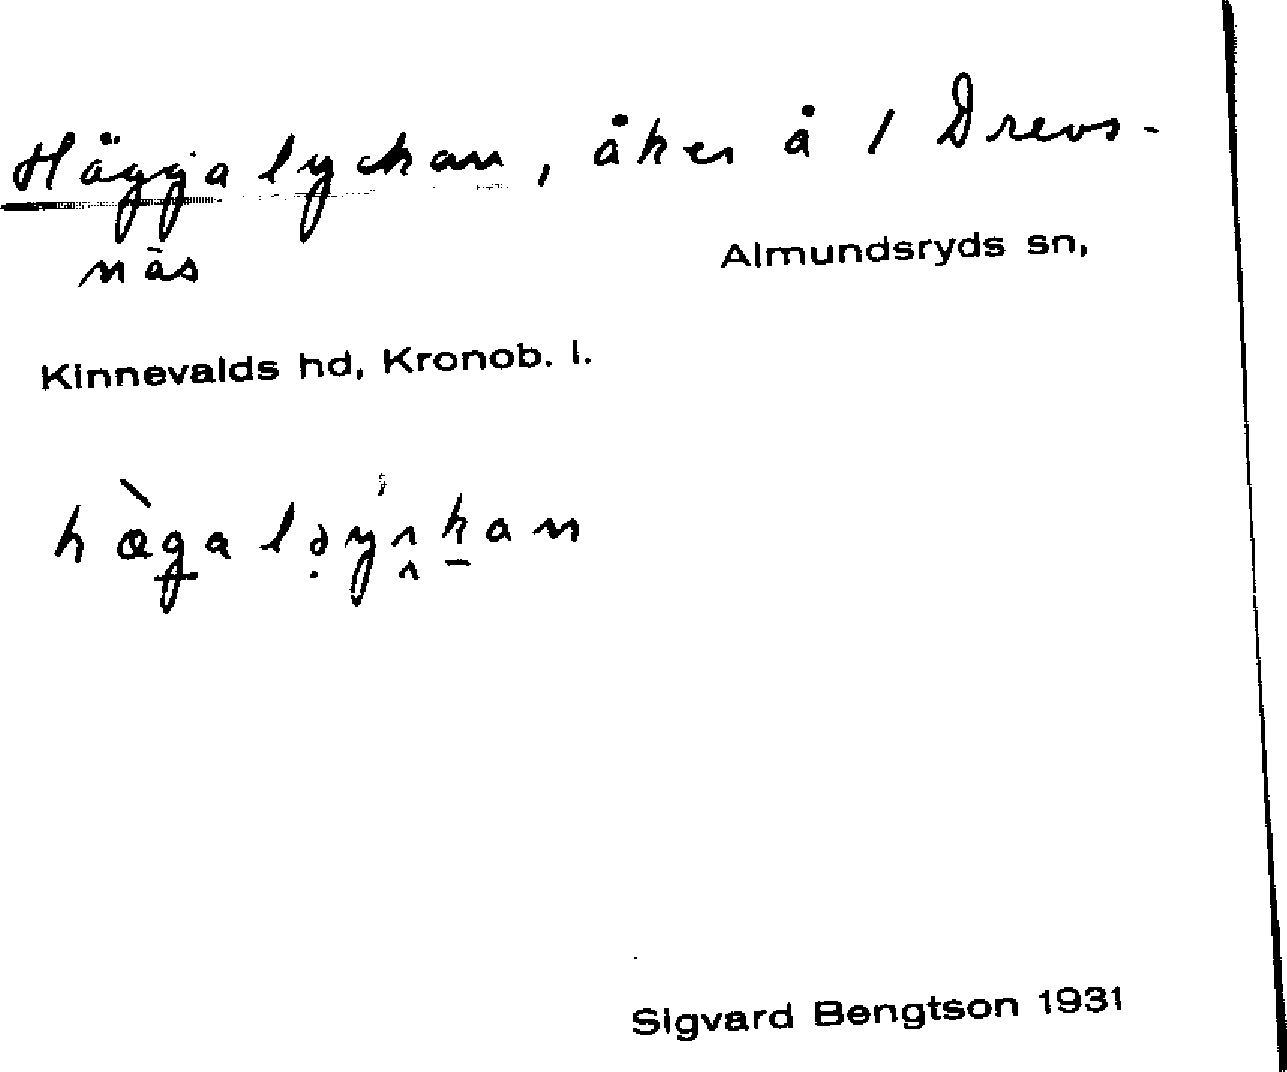 Häggalyckan, åker å 1 Drevs-
näs
Almundsryds sn,
Kinnevalds hd, Kronob. l.
Sigvard Bengtson 1931